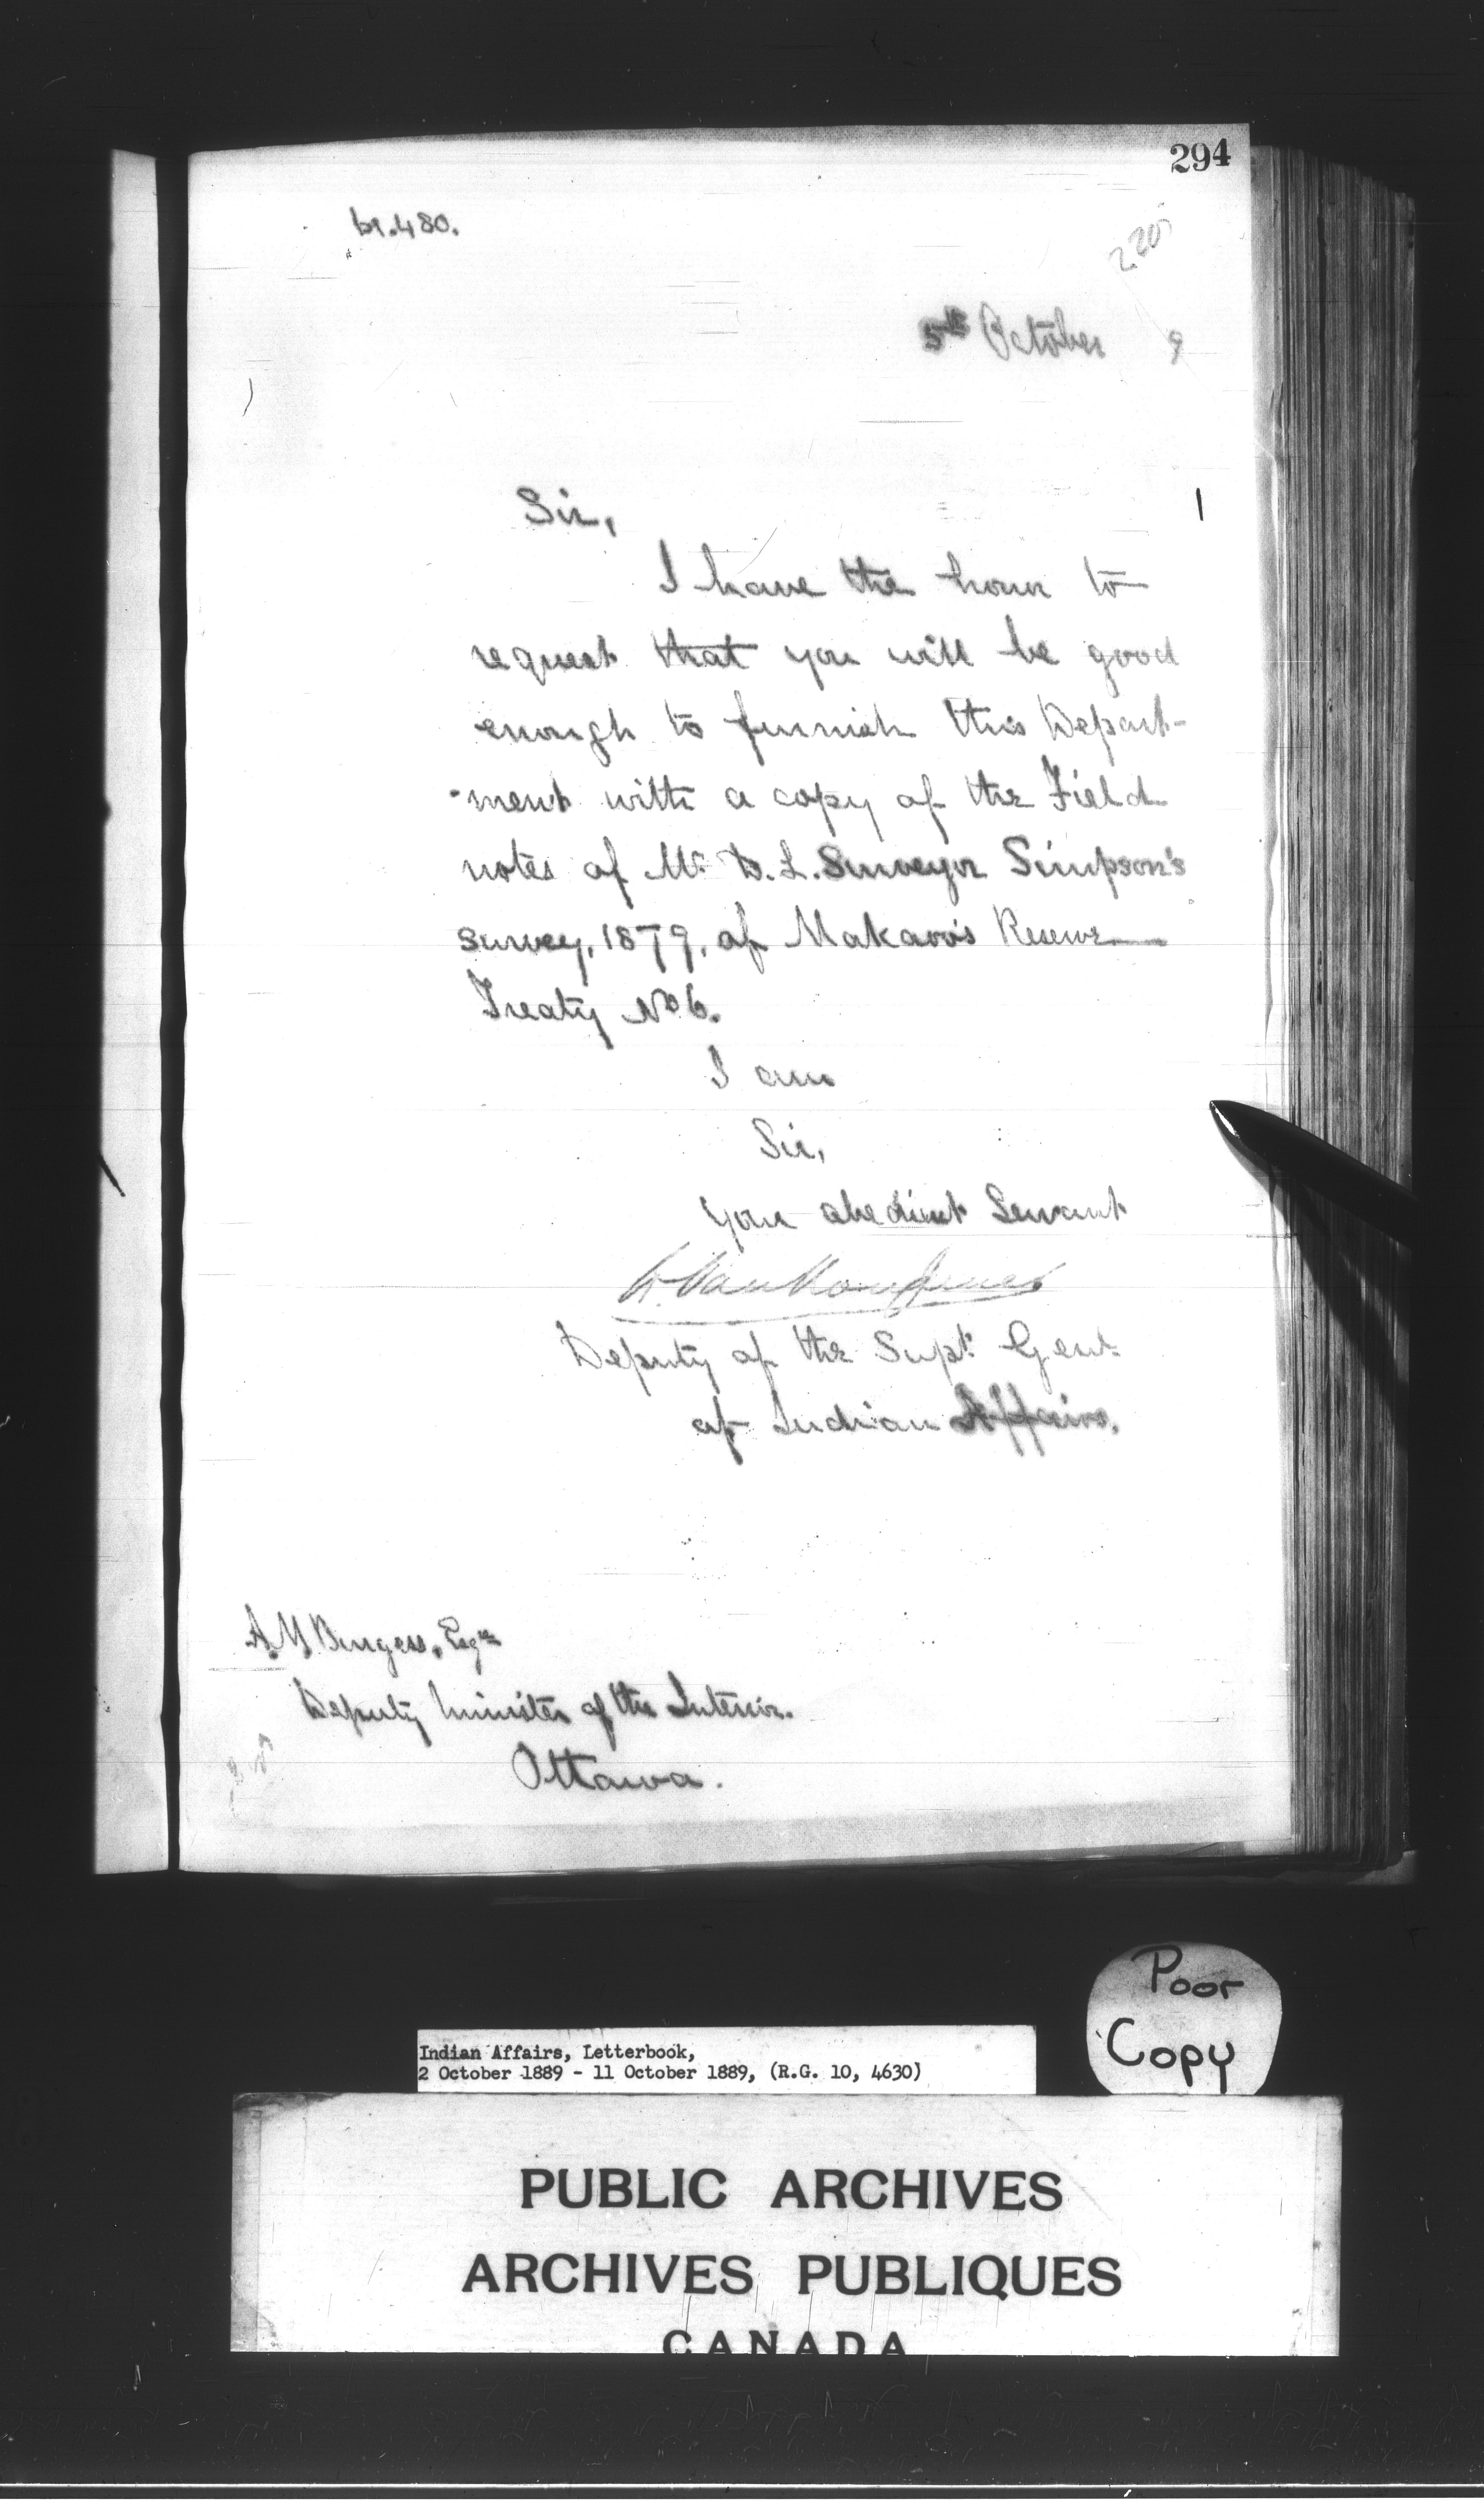 294
61.480.
220
5th October 9
Sir,
I have the honor to
request that you will be good
enough to furnish this Depart-
-ment with a copy of the Field
notes of Mr. D. L. Surveyor Simpson's
survey, 1879, of Makaoo's Reserve
Treaty No 6.
I am
Sir,
Your obedient Servant
L. Vankoughnet
Deputy of the Supt. Genl.
of Indian Affairs.
A. M. Burgess, Esqre
Deputy Minister of the Interior.
Ottawa.
Poor
Copy
Indian Affairs, Letterbook,
2 October 1889 - 11 October 1889, (R.G. 10, 4630)
PUBLIC ARCHIVES
ARCHIVES PUBLIQUES
CANADA